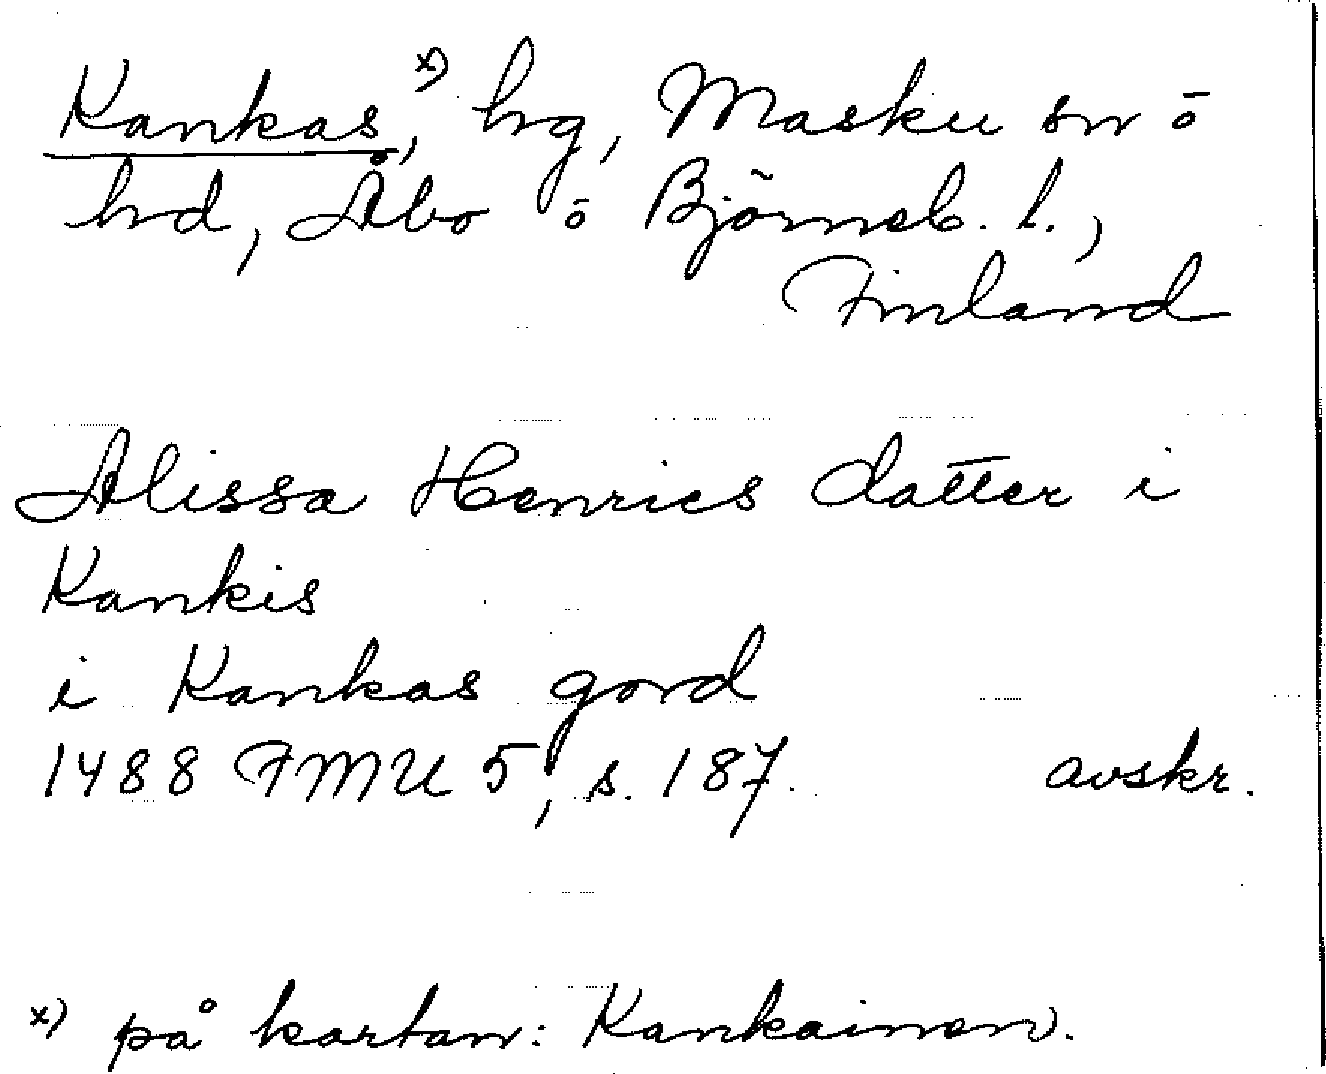 Kankas,x) hg, Masku sn o
hd, Åbo o Björneb. l.,
Finland
Alissa Henrics datter i
Kankis
i Kankas gord
1488 FMU 5, s. 187. avskr.
x) på kartan: Kankainen.